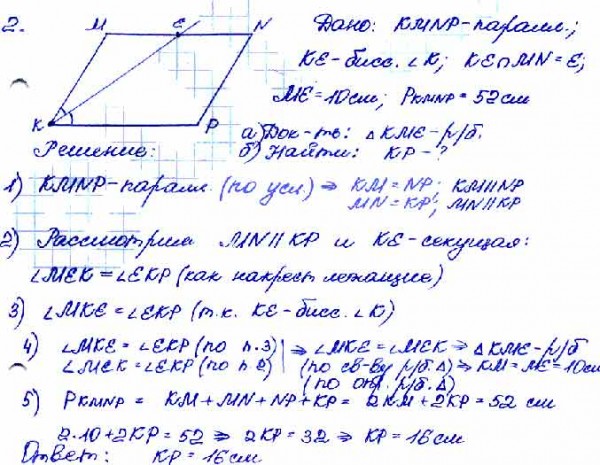 2.
M E N
K P
Дано: KMNP-паралл.;
KE-бисс. ∠K; KE∩MN=E;
ME=10см; P_KMNP=52см
а) Док-ть: △KME-р/б.
Решение: б) Найти: KP-?
1) KMNP-паралл. (по усл.) ⇒ KM=NP; KM||NP
MN=KP; MN||KP
2) Рассмотрим MN||KP и KE-секущая:
∠MEK=∠EKP (как накрест лежащие)
3) ∠MKE=∠EKP (т.к. KE-бисс. ∠K)
4) ∠MKE=∠EKP (по п.3) | ⇒ ∠MKE=∠MEK ⇒ △KME-р/б
∠MEK=∠EKP (по п.2) | (по св-ву р/б.△) ⇒ KM=ME=10см
(по опр. р/б.△)
5) P_KMNP = KM+MN+NP+KP = 2KM+2KP=52 см
2·10+2KP=52 ⇒ 2KP=32 ⇒ KP=16см
Ответ: KP=16см